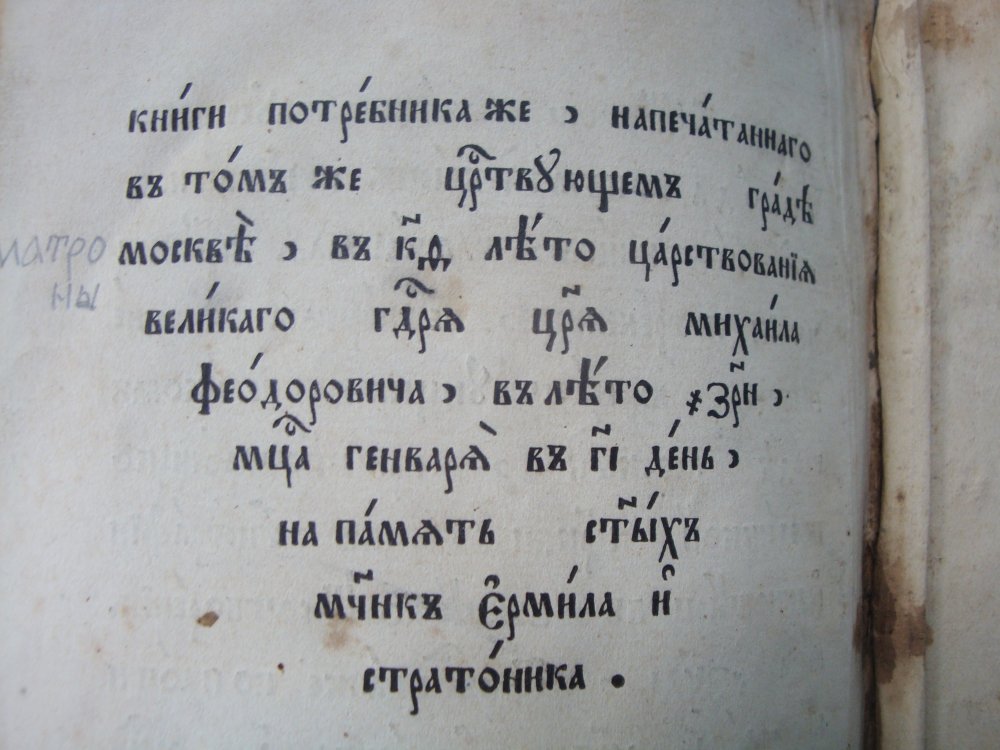 кни́ги потре́бника же , напеча́таннаго
въ то́мъ же црⷭ҇твꙋющемъ гра́дѣ
матро
москвѣ̀ , въ к҃д лѣ́то ца́рствованїѧ
ны
вели́каго гдⷭ҇рѧ цр҃ѧ михаи́ла
фео́доровича , въ лѣ́то ҂зр҃н ,
мцⷭ҇а генварѧ̀ въ г҃і де́нь ,
на па́мѧть ст҃ы́хъ
мч҃нкъ є҆рми́ла и҆
страто́ника .